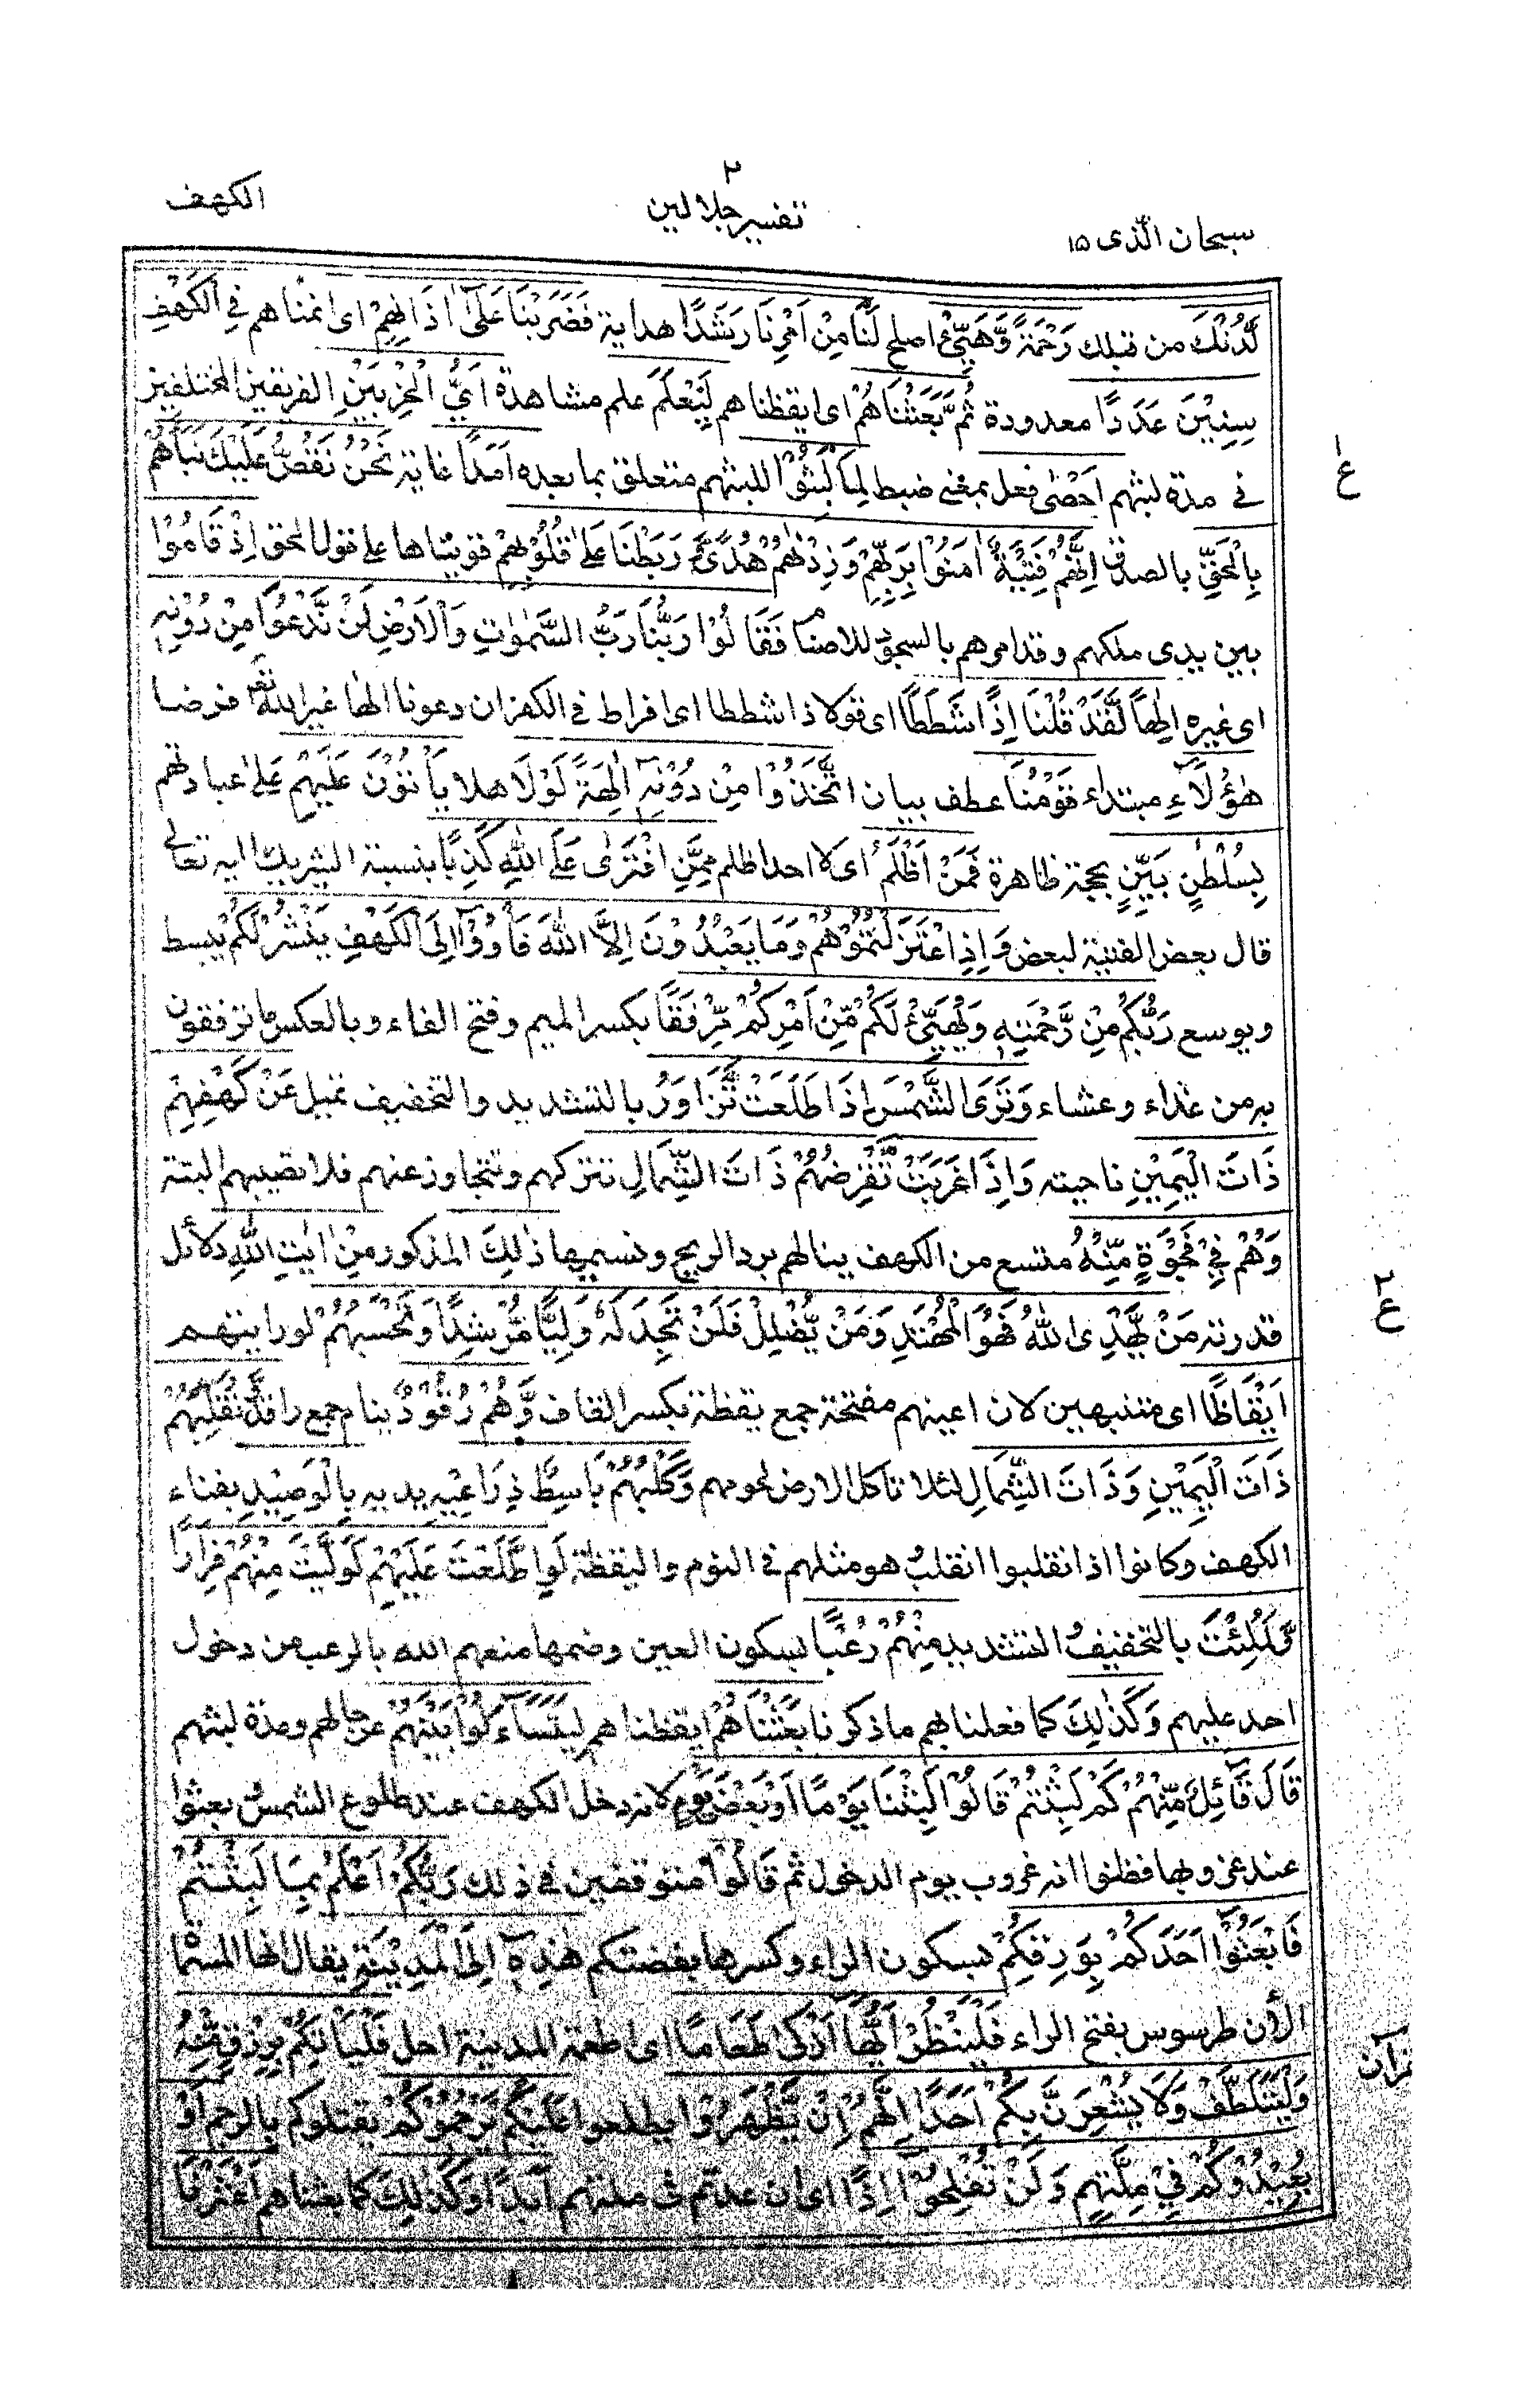 ٢
سبحان الّذى ١٥ تفسير جلالين الكهف
لَّدُنْكَ من قبلك رَحْمَةً وَّهَيِّئْ اصلح لَنَا مِنْ اَمْرِنَا رَشَدًا هداية فَضَرَبْنَا عَلَىٰٓ اٰذَانِهِمْ اى انمناهم فِى الْكَهْفِ
سِنِيْنَ عَدَدًا معدودة ثُمَّ بَعَثْنَاهُمْ اى ايقظناهم لِنَعْلَمَ علم مشاهدة اَىُّ الْحِزْبَيْنِ الفريقين المختلفين
فى مدة لبثهم اَحْصٰى فعل بمعنى ضبط لِمَا لَبِثُوْٓا للبثهم متعلق بما بعده اَمَدًا غاية نَحْنُ نَقُصُّ عَلَيْكَ نَبَاَهُمْ
بِالْحَقِّ بالصدق اِنَّهُمْ فِتْيَةٌ اٰمَنُوْا بِرَبِّهِمْ وَزِدْنٰهُمْ هُدًى وَّرَبَطْنَا عَلٰى قُلُوْبِهِمْ قويناها على قول الحق اِذْ قَامُوْا
بين يدى ملكهم وقد امرهم بالسجود للاصنام فَقَالُوْا رَبُّنَا رَبُّ السَّمٰوٰتِ وَالْاَرْضِ لَنْ نَّدْعُوَا مِنْ دُوْنِهٖٓ
اى غيره اِلٰهًا لَّقَدْ قُلْنَا اِذًا شَطَطًا اى قولا ذا شططا اى افراط فى الكفران دعونا الٰها غير الله تعم فرضا
هٰؤُلَآءِ مبتداء قَوْمُنَا عطف بيان اتَّخَذُوْا مِنْ دُوْنِهٖٓ اٰلِهَةً لَوْلَا هلا يَاْتُوْنَ عَلَيْهِمْ على عبادتهم
بِسُلْطٰنٍ بَيِّنٍ بحجة ظاهرة فَمَنْ اَظْلَمُ اى لا احد اظلم مِمَّنِ افْتَرٰى عَلَى اللّٰهِ كَذِبًا بنسبة الشريك اليه تعالى
قال بعض الفتية لبعض وَاِذِ اعْتَزَلْتُمُوْهُمْ وَمَا يَعْبُدُوْنَ اِلَّا اللّٰهَ فَاْوٗٓا اِلَى الْكَهْفِ يَنْشُرْ لَكُمْ يبسط
ويوسع رَبُّكُمْ مِّنْ رَّحْمَتِهٖ وَيُهَيِّئْ لَكُمْ مِّنْ اَمْرِكُمْ مِّرْفَقًا بكسر الميم وفتح الفاء وبالعكس ما ترفقون
به من غذاء وعشاء وَتَرَى الشَّمْسَ اِذَا طَلَعَتْ تَّزَاوَرُ بالتشديد والتخفيف تميل عَنْ كَهْفِهِمْ
ذَاتَ الْيَمِيْنِ ناحيته وَاِذَا غَرَبَتْ تَّقْرِضُهُمْ ذَاتَ الشِّمَالِ تتركهم وتتجاوز عنهم فلا تصيبهم البتة
وَهُمْ فِىْ فَجْوَةٍ مِّنْهُ متسع من الكهف ينالهم برد الريح ونسيمها ذٰلِكَ المذكور مِنْ اٰيٰتِ اللّٰهِ دلائل
قدرته مَنْ يَّهْدِى اللّٰهُ فَهُوَ الْمُهْتَدِ وَمَنْ يُّضْلِلْ فَلَنْ تَجِدَ لَهٗ وَلِيًّا مُّرْشِدًا وَتَحْسَبُهُمْ لو رايتهم
اَيْقَاظًا اى متنبهين لان اعينهم مفتحة جمع يقظة بكسر القاف وَّهُمْ رُقُوْدٌ نيام جمع راقد وَّنُقَلِّبُهُمْ
ذَاتَ الْيَمِيْنِ وَذَاتَ الشِّمَالِ لئلا تاكل الارض لحومهم وَكَلْبُهُمْ بَاسِطٌ ذِرَاعَيْهِ يديه بِالْوَصِيْدِ بفناء
الكهف وكانوا اذا انقلبوا انقلب هو مثلهم فى النوم واليقظة لَوِ اطَّلَعْتَ عَلَيْهِمْ لَوَلَّيْتَ مِنْهُمْ فِرَارًا
وَّلَمُلِئْتَ بالتخفيف والتشديد مِنْهُمْ رُعْبًا بسكون العين وضمها منعهم الله بالرعب من دخول
احد عليهم وَكَذٰلِكَ كما فعلنا بهم ما ذكرنا بَعَثْنَاهُمْ ايقظناهم لِيَتَسَآءَلُوْا بَيْنَهُمْ عن حالهم ومدة لبثهم
قَالَ قَآئِلٌ مِّنْهُمْ كَمْ لَبِثْتُمْ قَالُوْا لَبِثْنَا يَوْمًا اَوْ بَعْضَ يَوْمٍ لانه دخل الكهف عند طلوع الشمس وبعثوا
عند غروبها فظنوا انه غروب يوم الدخول ثم قَالُوْا متوقفين فى ذلك رَبُّكُمْ اَعْلَمُ بِمَا لَبِثْتُمْ
فَابْعَثُوْٓا اَحَدَكُمْ بِوَرِقِكُمْ بسكون الراء وكسرها بفضتكم هٰذِهٖٓ اِلَى الْمَدِيْنَةِ يقال انها المسماة
الأن طرسوس بفتح الراء فَلْيَنْظُرْ اَيُّهَآ اَزْكٰى طَعَامًا اى اطعمة المدينة احل فَلْيَاْتِكُمْ بِرِزْقٍ مِّنْهُ
وَلْيَتَلَطَّفْ وَلَا يُشْعِرَنَّ بِكُمْ اَحَدًا اِنَّهُمْ اِنْ يَّظْهَرُوْا يطلعوا عَلَيْكُمْ يَرْجُمُوْكُمْ يقتلوكم بالرجم اَوْ
يُعِيْدُوْكُمْ فِىْ مِلَّتِهِمْ وَلَنْ تُفْلِحُوْٓا اِذًا اى ان عدتم فى ملتهم اَبَدًا وَكَذٰلِكَ كما بعثناهم اَعْثَرْنَا
ع١
ع٢